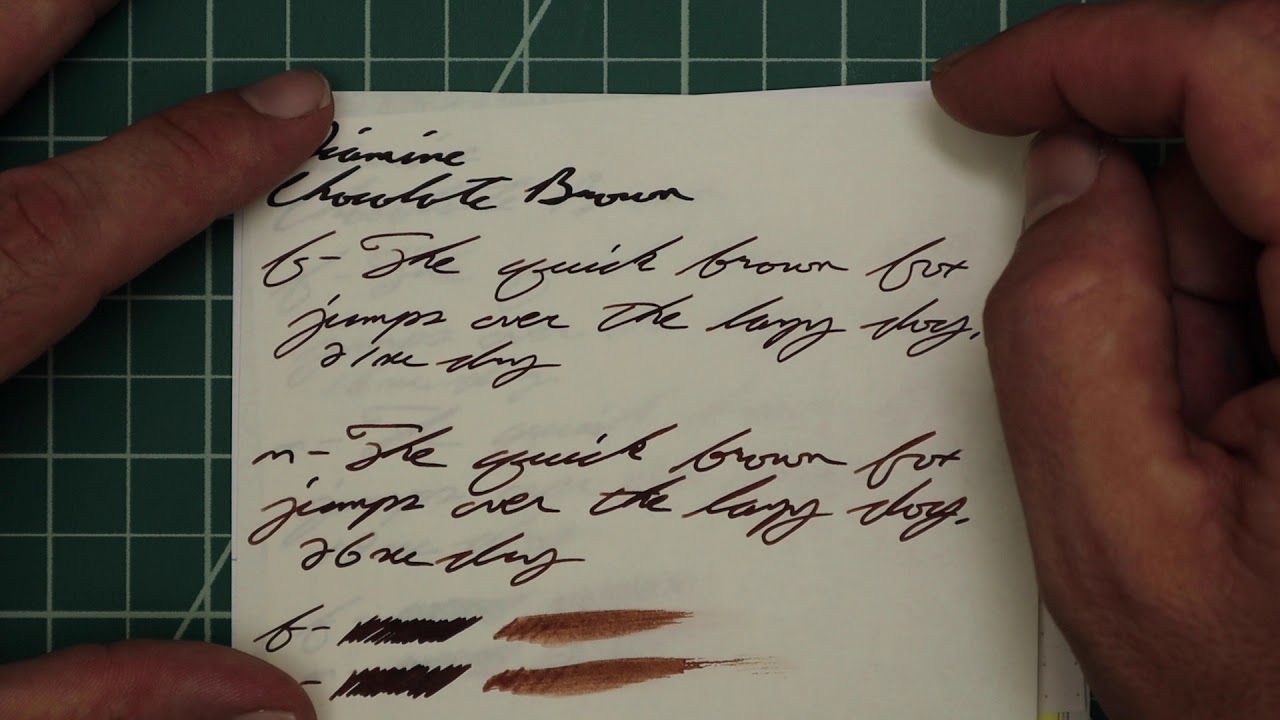 Diamine
Chocolate Brown
f- The quick brown fox
jumps over the lazy dog.
21 sec dry
m- The quick brown fox
jumps over the lazy dog.
26 sec dry
f-
-